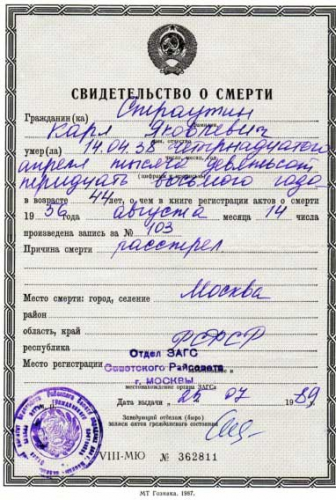 СВИДЕТЕЛЬСТВО О СМЕРТИ
Гражданин(ка) Страутин
Карл Яковлевич
умер(ла) 14.04.38 четырнадцатого
апреля тысяча девятьсот
тридцать восьмого года
в возрасте 44 лет, о чем в книге регистрации актов о смерти
19 56 года августа месяца 14 числа
произведена запись за № 103
Причина смерти расстрел
Место смерти: город, селение Москва
район
область, край
республика РСФСР
Место регистрации Отдел ЗАГС
Советского Райсовета
г. МОСКВЫ
местонахождение органа ЗАГСа
Дата выдачи 07 1989
Заведующий отделом (бюро)
записи актов гражданского состояния
VIII-МЮ № 362811
МТ Гознака. 1987.